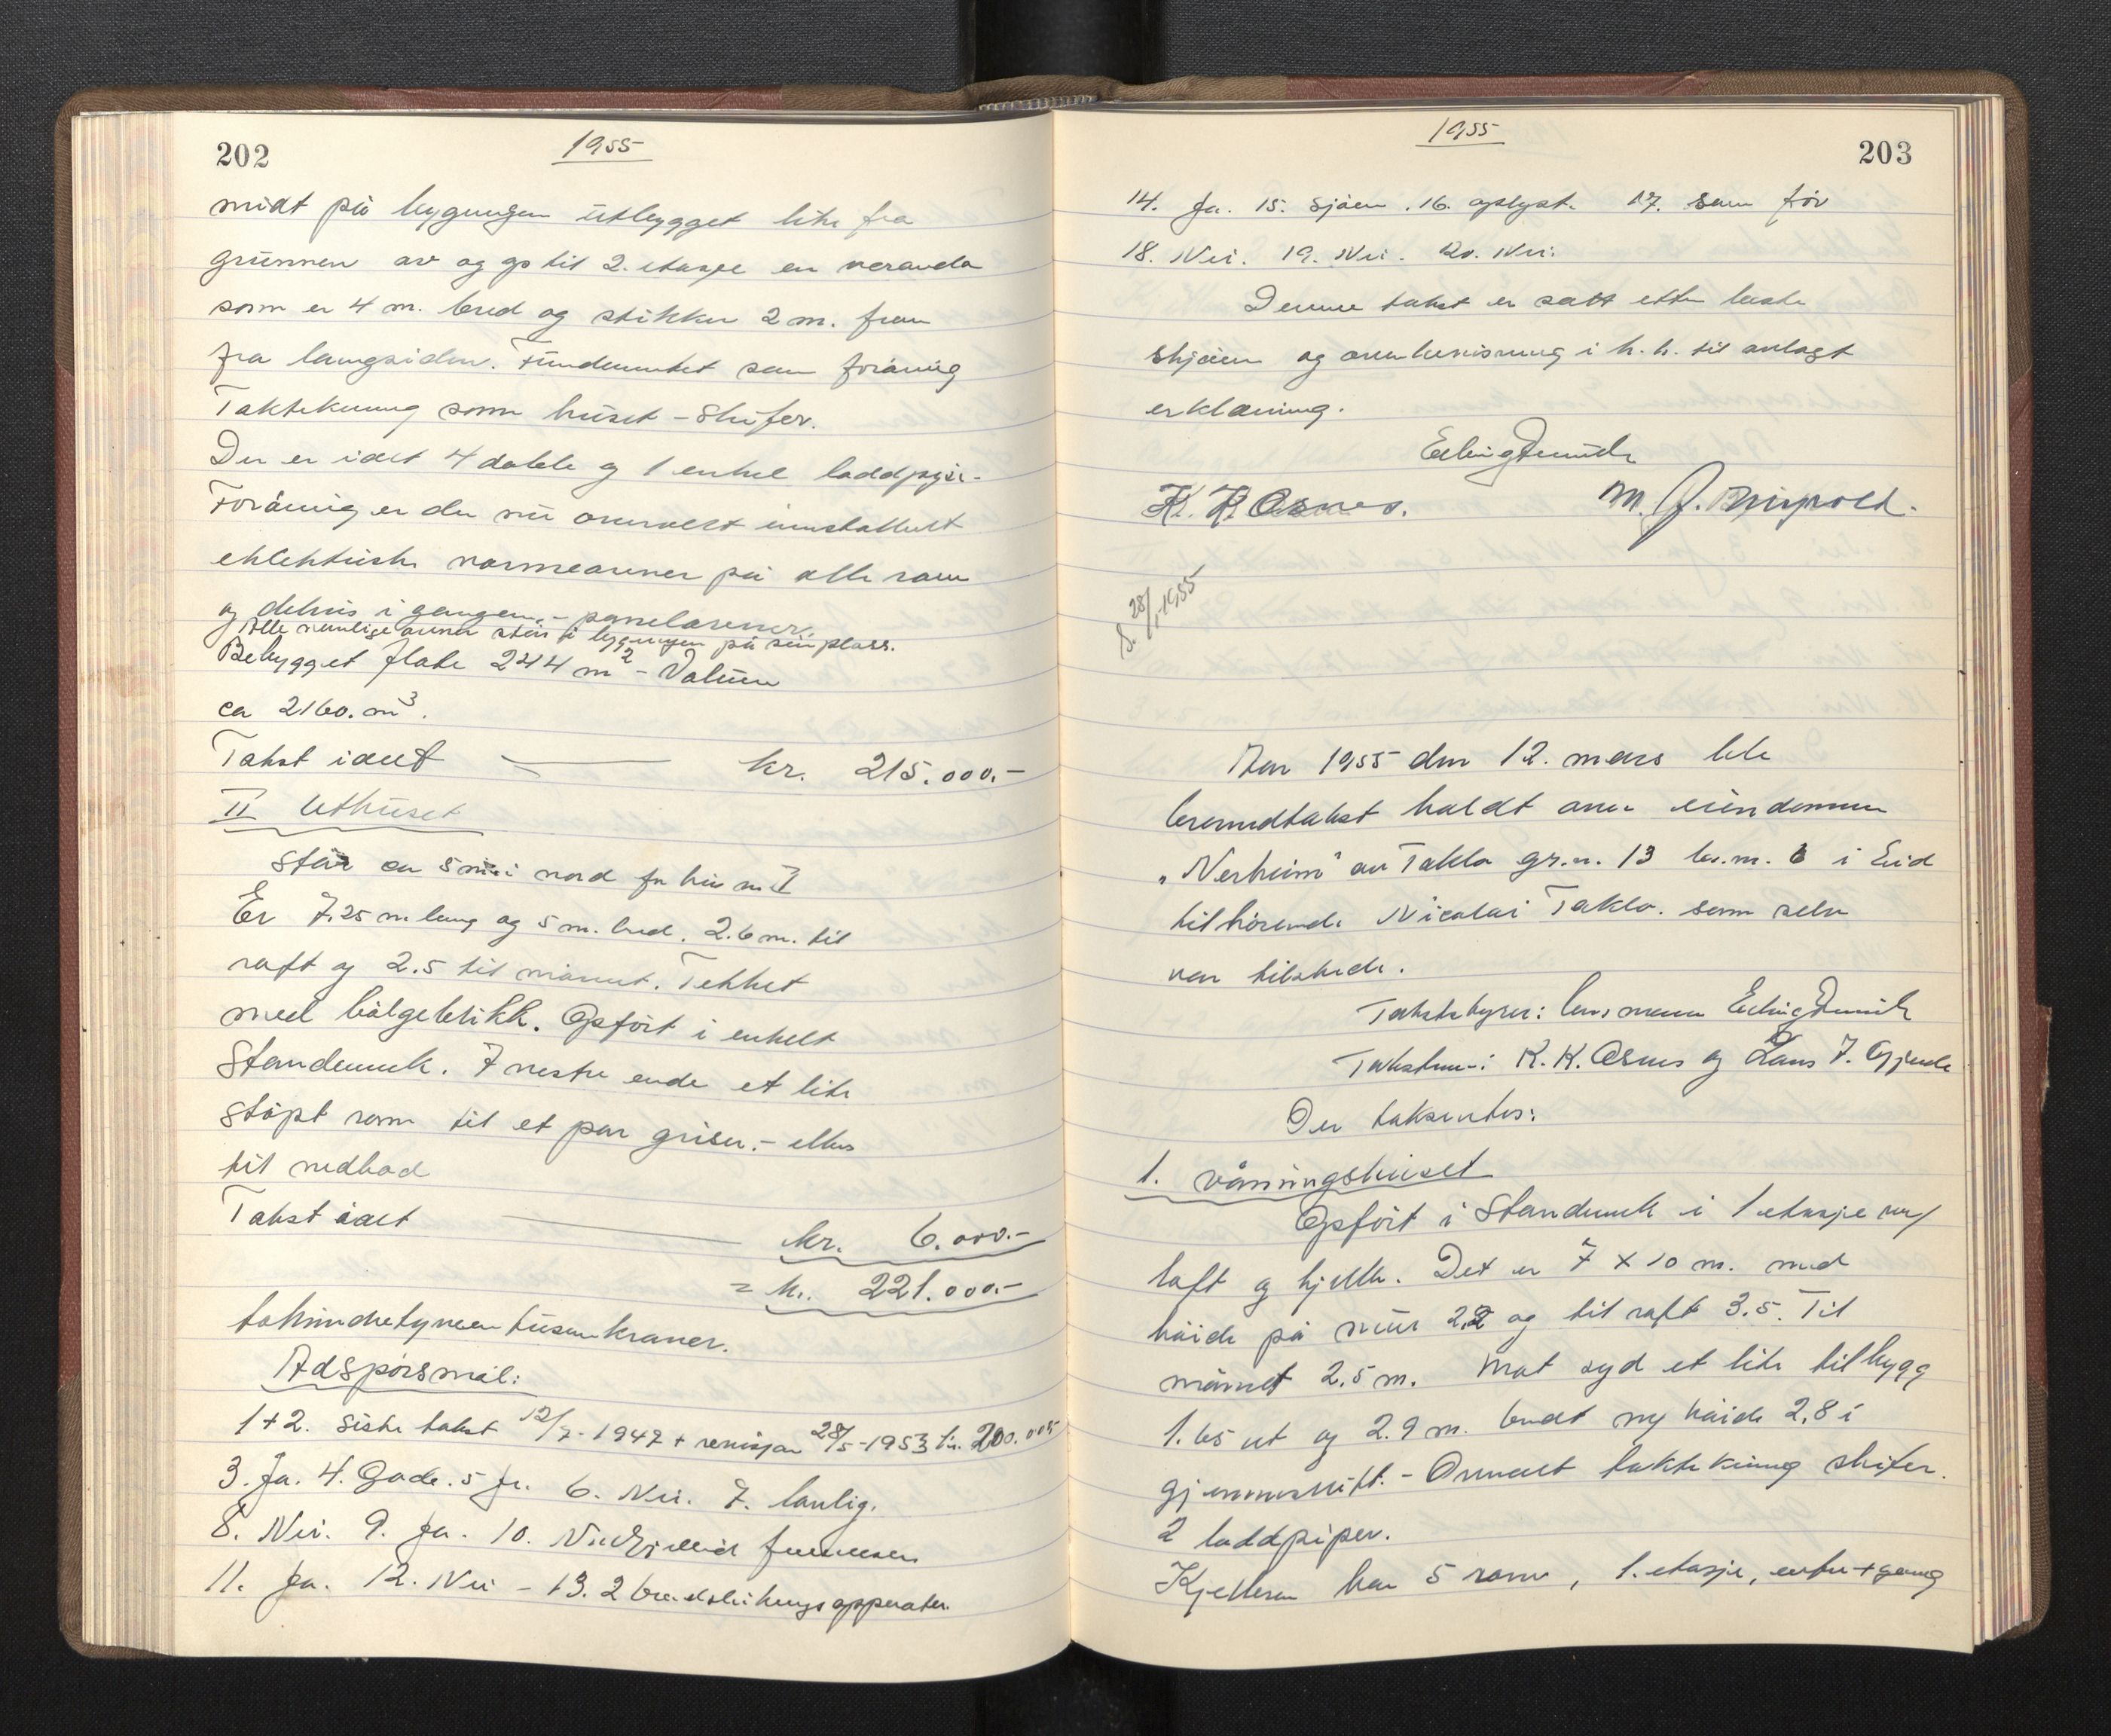 202
1955
midt på bygningen utbygget like fra
grunnen av og op til 2. etasje en veranda
som er 4 m. bred og stikker 2 m. fram
fra langsiden. Fundamentet som foråvrig
Taktekning som huset - skifer.
Der er idet 4 doble og 1 enkel loddpipe.
Foråvrig er der nu overalt innstallert
elektriske varmeovner på alle rom
og delvis i gangen, - panelovner.
Alle vanlige ovner står i bygningen på sin plass.
Bebygget flate 244 m2 - Volum
ca 2160. m3.
Takst idet kr. 215.000.-
II Uthuset
står ca 5 m i nord fra hus nr I
Er 7.25 m lang og 5 m. bred. 2.6 m. til
raft og 2.5 til mønet. Tekket
med bølgeblikk. Opført i enkelt
standerverk. I vestre ende et lite
støpt rom til et par griser. - ellers
til vedbod
Takst idet kr. 6.000.-
= kr. 221.000.-
tohundreogtyveen tusen kroner.
Adspørsmål:
1+2. Siste takst 12/7-1947 + revisjon 28/5-1953 kr. 200.000
3. Ja. 4. Gode. 5 Ja. 6. Nei. 7. lovlig.
8. Nei. 9. Ja. 10. Nei
11. Ja. 12. Nei - 13. 2 brandslukningsapparater.
1955
203
14. Ja. 15. Sjøen. 16. oplyst. 17. som før
18. Nei. 19. Nei. 20. Nei.
Denne takst er satt etter beste
skjønn og overbevisning i h. h. til avlagt
erklæring.
K. K Osnes.
28/1-1955
Aar 1955 den 12. mars ble
branndtakst holdt over eiendommen
"Nerheim" av Taklo gr.n. 13 br.nr. 6 i Eid
tilhørende Nicolai Taklo. som selv
var tilstede.
Takstbyrer: lensmann
Takstmenn: K. K. Osnes og Lars J. Gjerde
Der taksertes:
1. våningshuset
Opført i standerverk i 1 etasje m/
loft og kjeller. Det er 7 x 10 m. med
høide på mur 2.2 og til raft 3.5. Til
mønet 2.5 m. Mot syd et lite tilbygg
1.65 ut og 2.9 m. bredt og høide 2,8 i
gjennemsnitt. - Overalt taktekning skifer.
2 loddpiper.
Kjelleren har 5 rom, 1. etasje, entre + gang